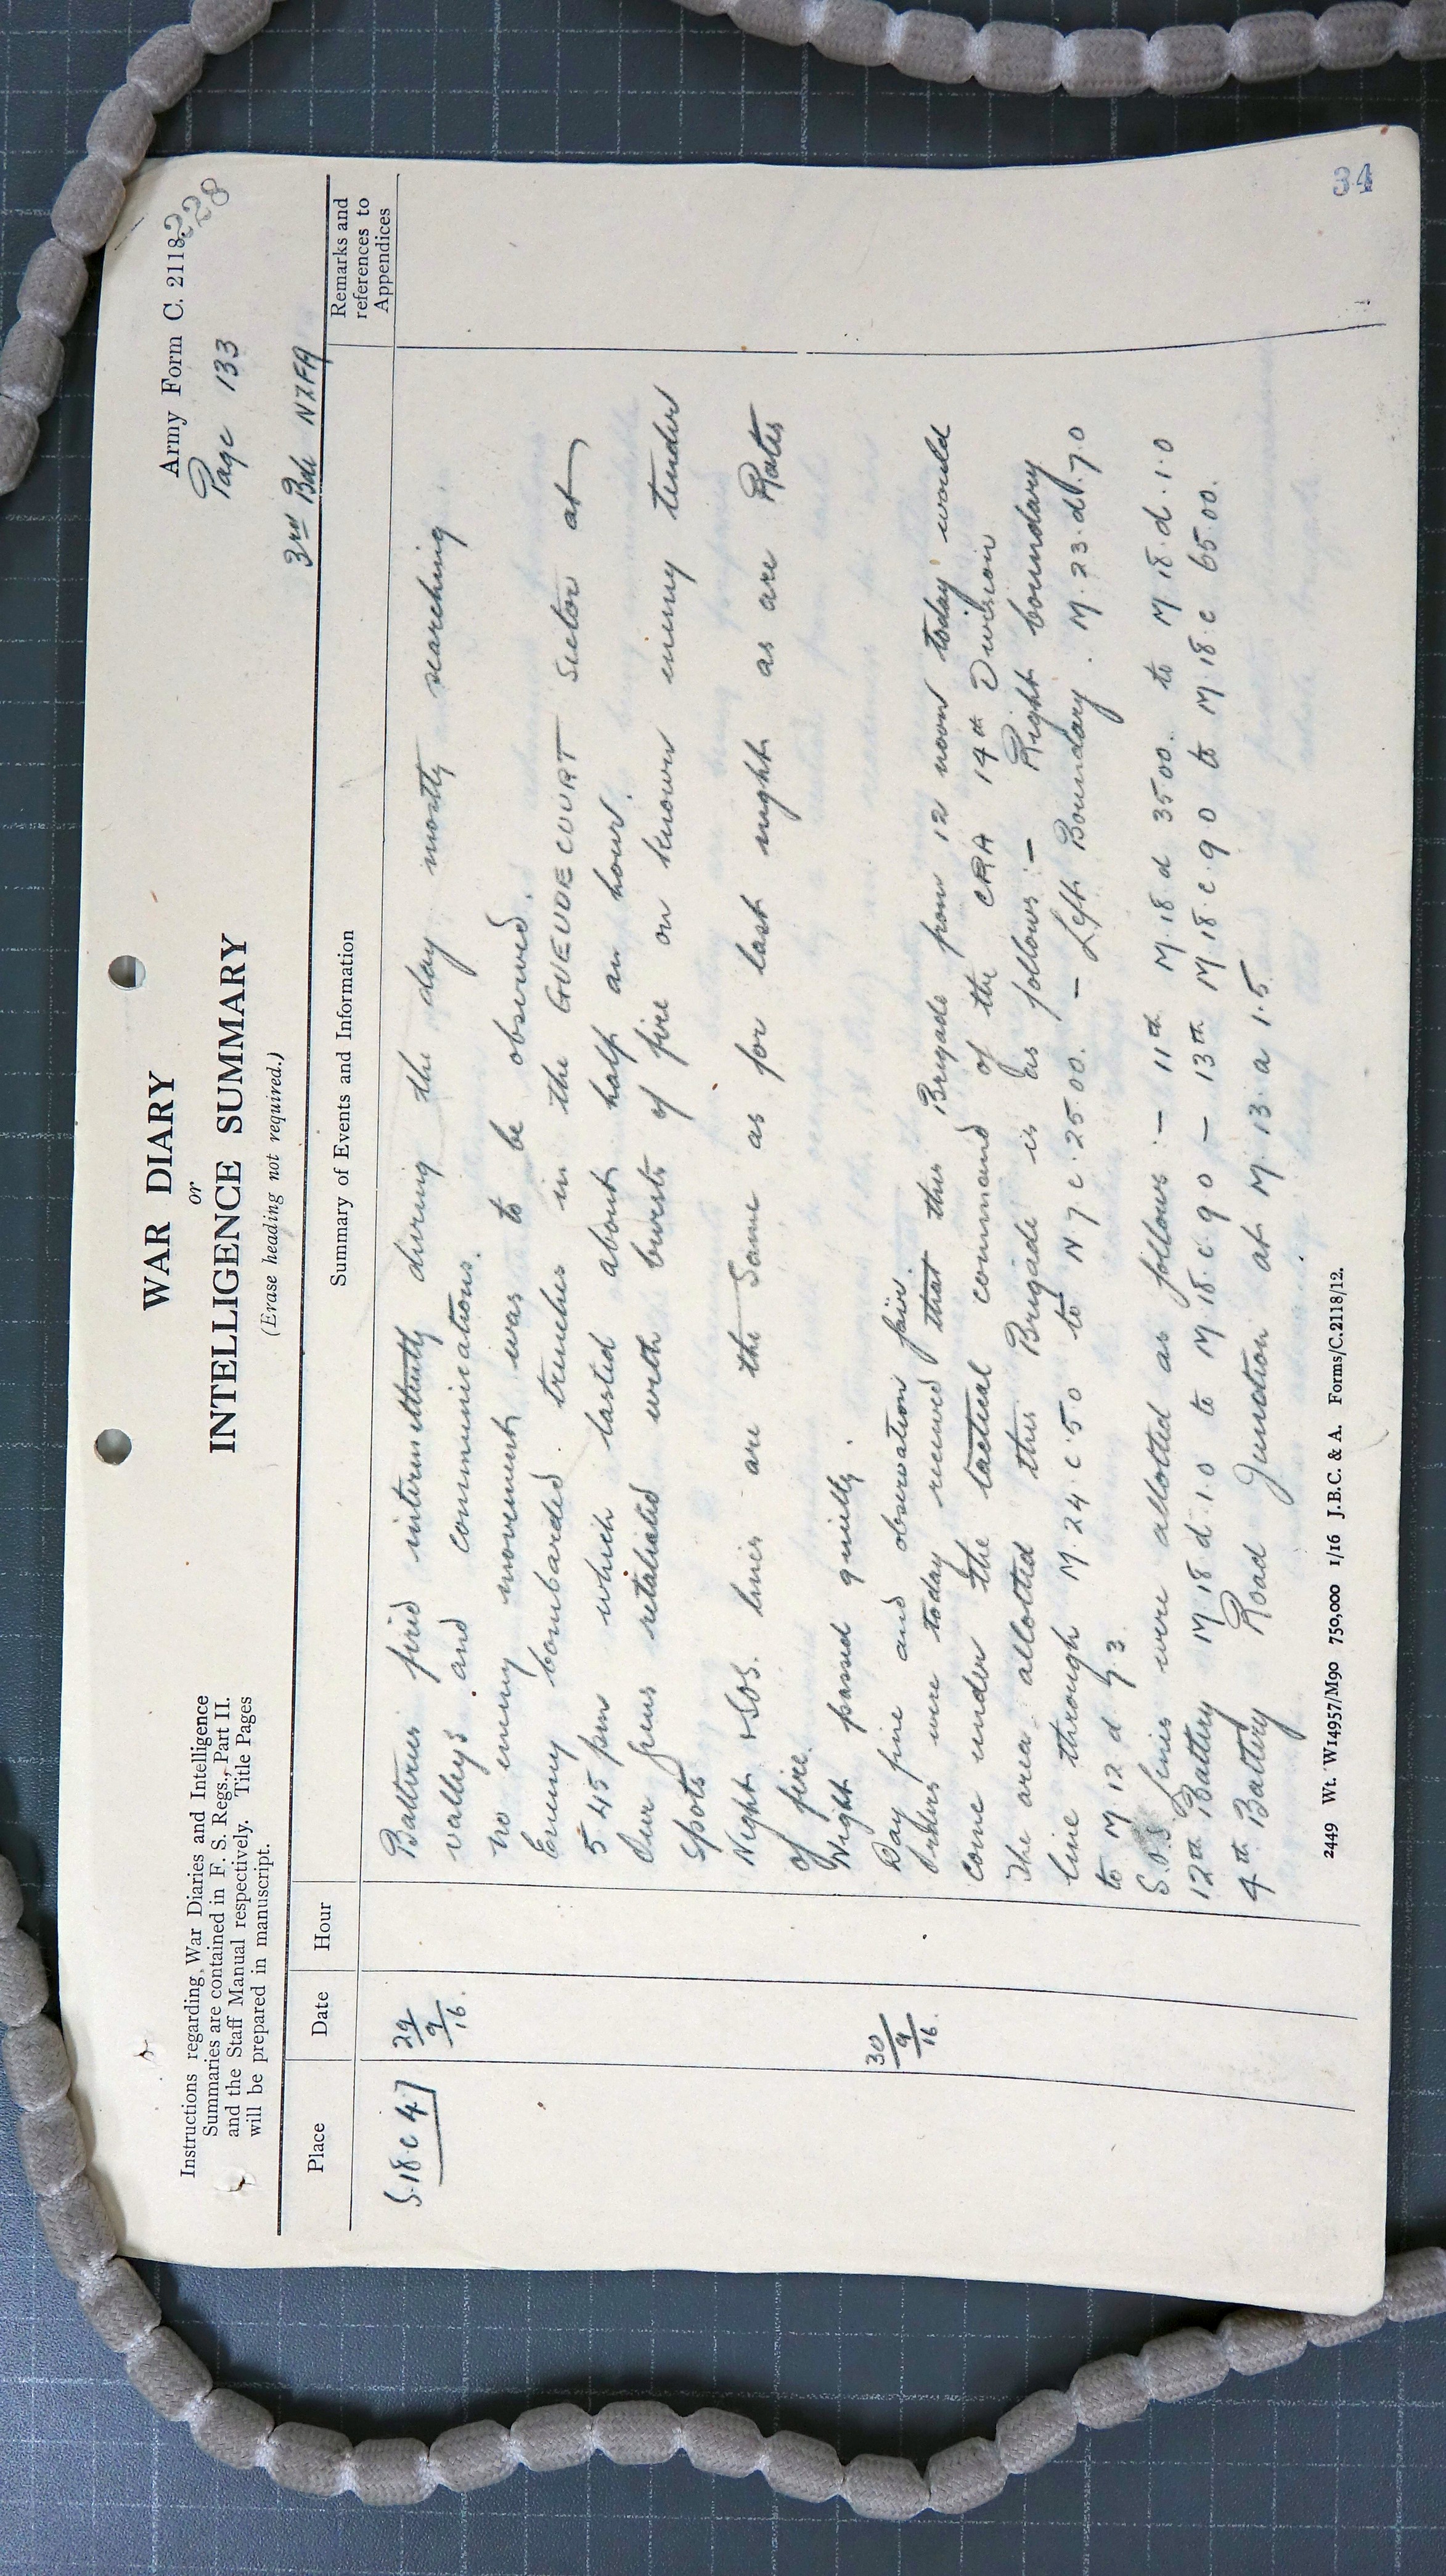 Army Form C. 2118.
228
WAR DIARY
Page 133
or
INTELLIGENCE SUMMARY
3rd Bde NZFA
(Erase heading not required.)
Instructions regarding War Diaries and Intelligence
Summaries are contained in F. S. Regs., Part II.
and the Staff Manual respectively. Title Pages
will be prepared in manuscript.
Place Date Hour Summary of Events and Information Remarks and references to Appendices
S.18.c 4.7 29/9/16. Batteries fired intermittently during the day mostly searching
valleys and communications.
No enemy movement was to be observed.
Enemy bombarded trenches in the GUEUDECOURT Sector at
5 45 pm which lasted about half an hour.
Our guns retaliated with bursts of fire on known enemy tender
spots
Night & SOS. lines are the same as for last night as are Rates
of fire.
Night passed quietly.
30/9/16. Day fine and observation fair.
Orders were today received that this Brigade from 12 noon today would
come under the tactical command of the CRA 14th Division
The area allotted this Brigade is as follows :- Right boundary
line through M.24.c.50 to N 7 c.25.00. - Left Boundary. M.23.d.7.0
to M.12 d 9.3
S.O.S Lines were allotted as follows :- 11th M.18.d 35 00. to M.18.d.1.0
12th Battery M.18 d.1.0 to M.18.c.90 - 13th M.18.c.90 to M.18.c 65.00.
4th Battery Road Junction at M.13.a 1.5.
2449 Wt. W14957/M90 750,000 1/16 J.B.C. & A. Forms/C.2118/12.
34